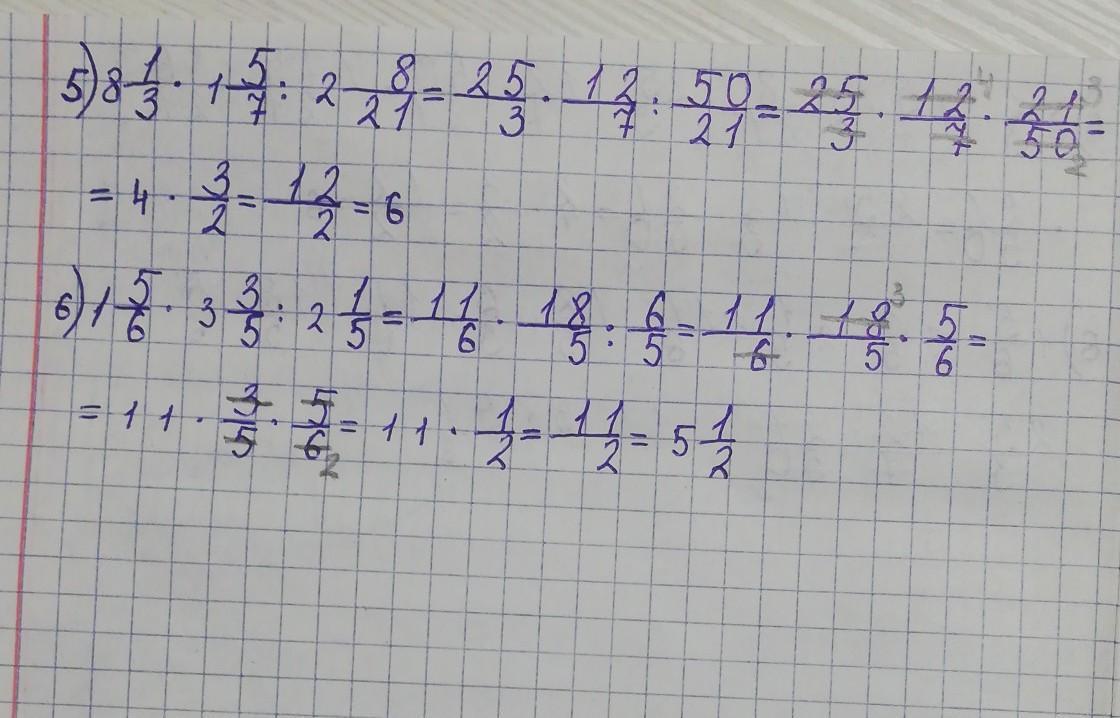 5) 8 1/3 · 1 5/7 : 2 8/21 = 25/3 · 12/7 : 50/21 = 25/3 · 12/7 4 · 21/50 3 2 =
= 4 · 3/2 = 12/2 = 6
6) 1 5/6 · 3 3/5 : 2 1/5 = 11/6 · 18/5 : 6/5 = 11/6 · 18/5 3 · 5/6 =
= 11 · 3/5 · 5/6 2 = 11 · 1/2 = 11/2 = 5 1/2